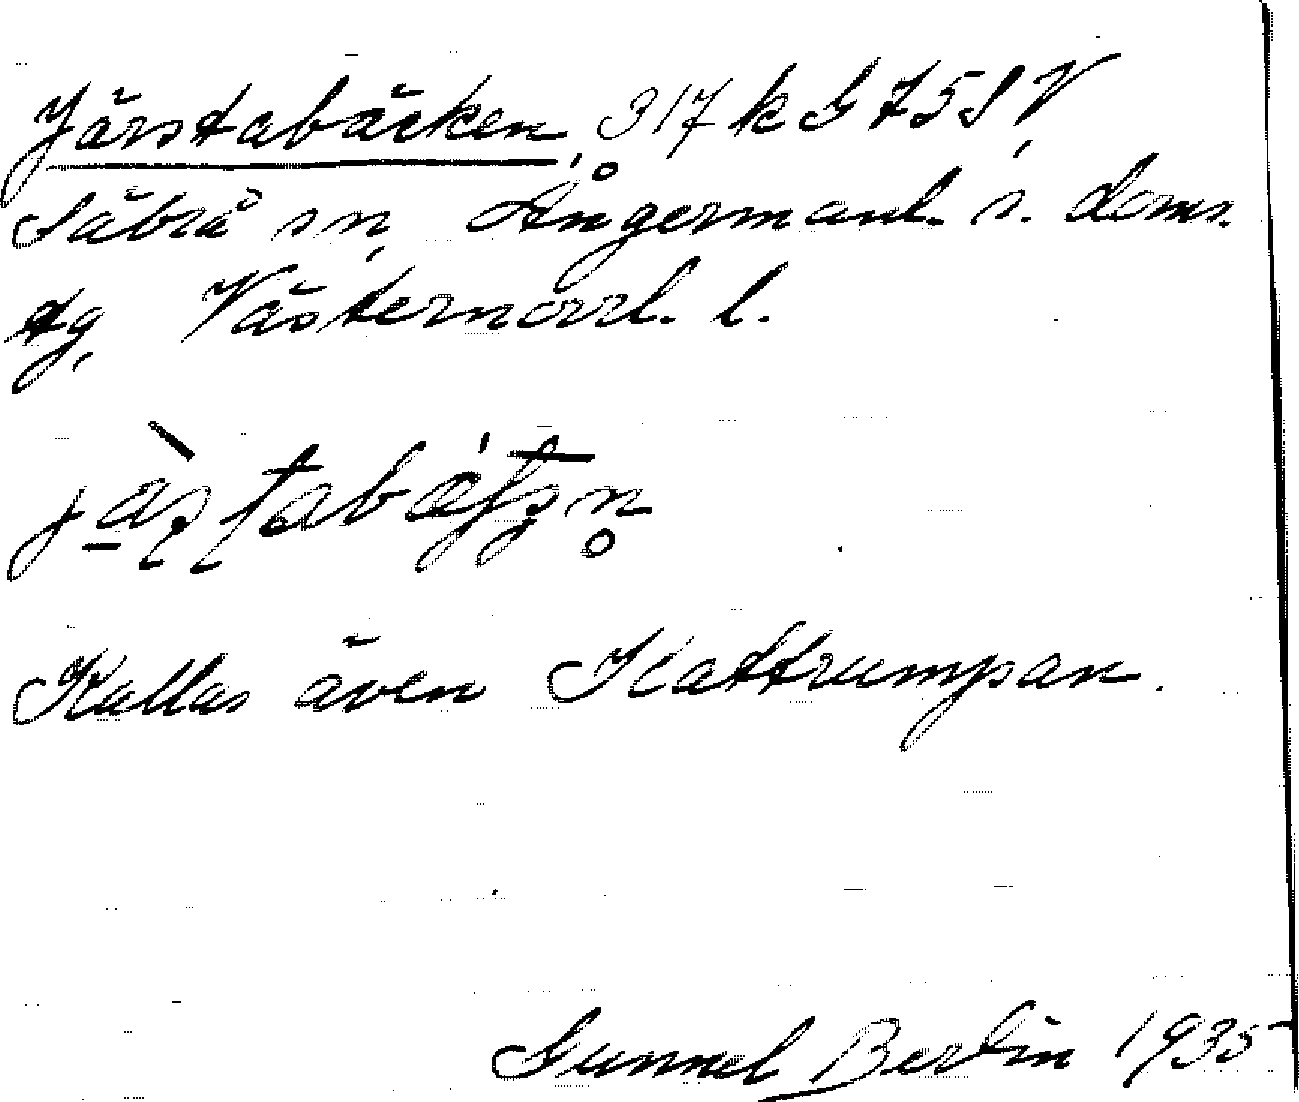 Järstabäcken, 317 k G 75 S, V
Säbrå sn, Ångermanl. s. doms.
tg, Västernorrl. l.
Kallas även Kattrumpan.
Gunnel Berlin 1935